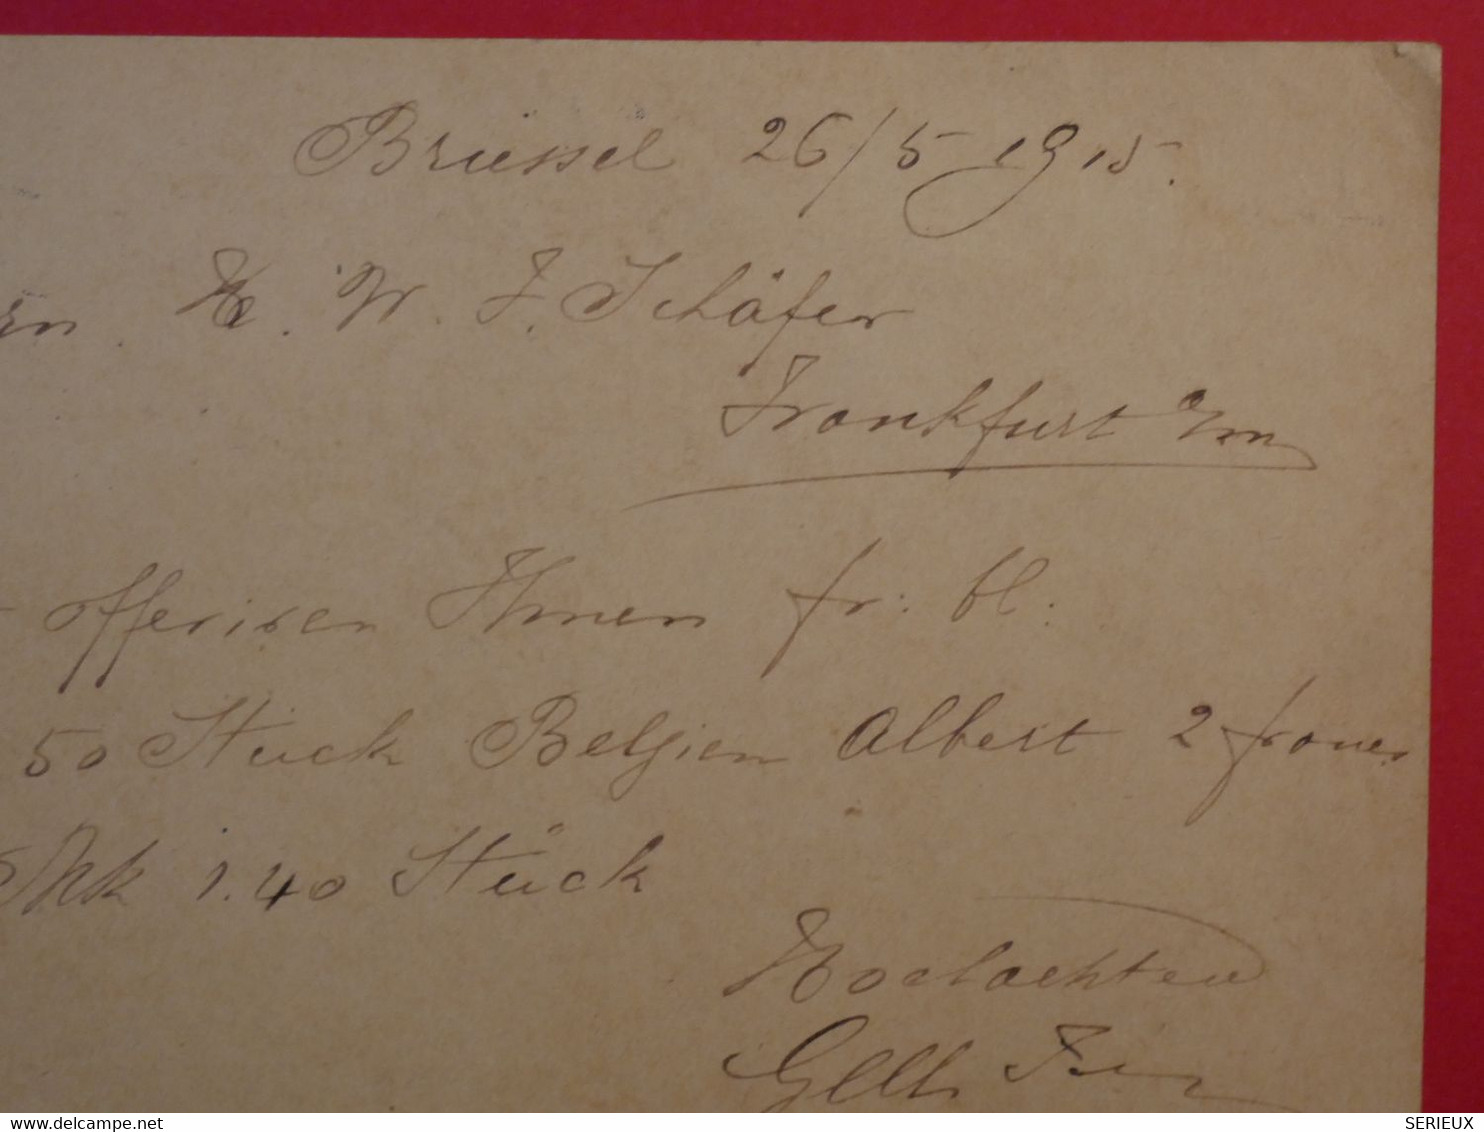 Brüssel 26/5 1915.
H. W. J. Schäfer
Frankfurt a/m
offeriren Ihnen fr: bl.
50 Stück Belgien Albert 2 francs
Mk 1.40 Stück
Hochachtend
delcampe.net
SERIEUX